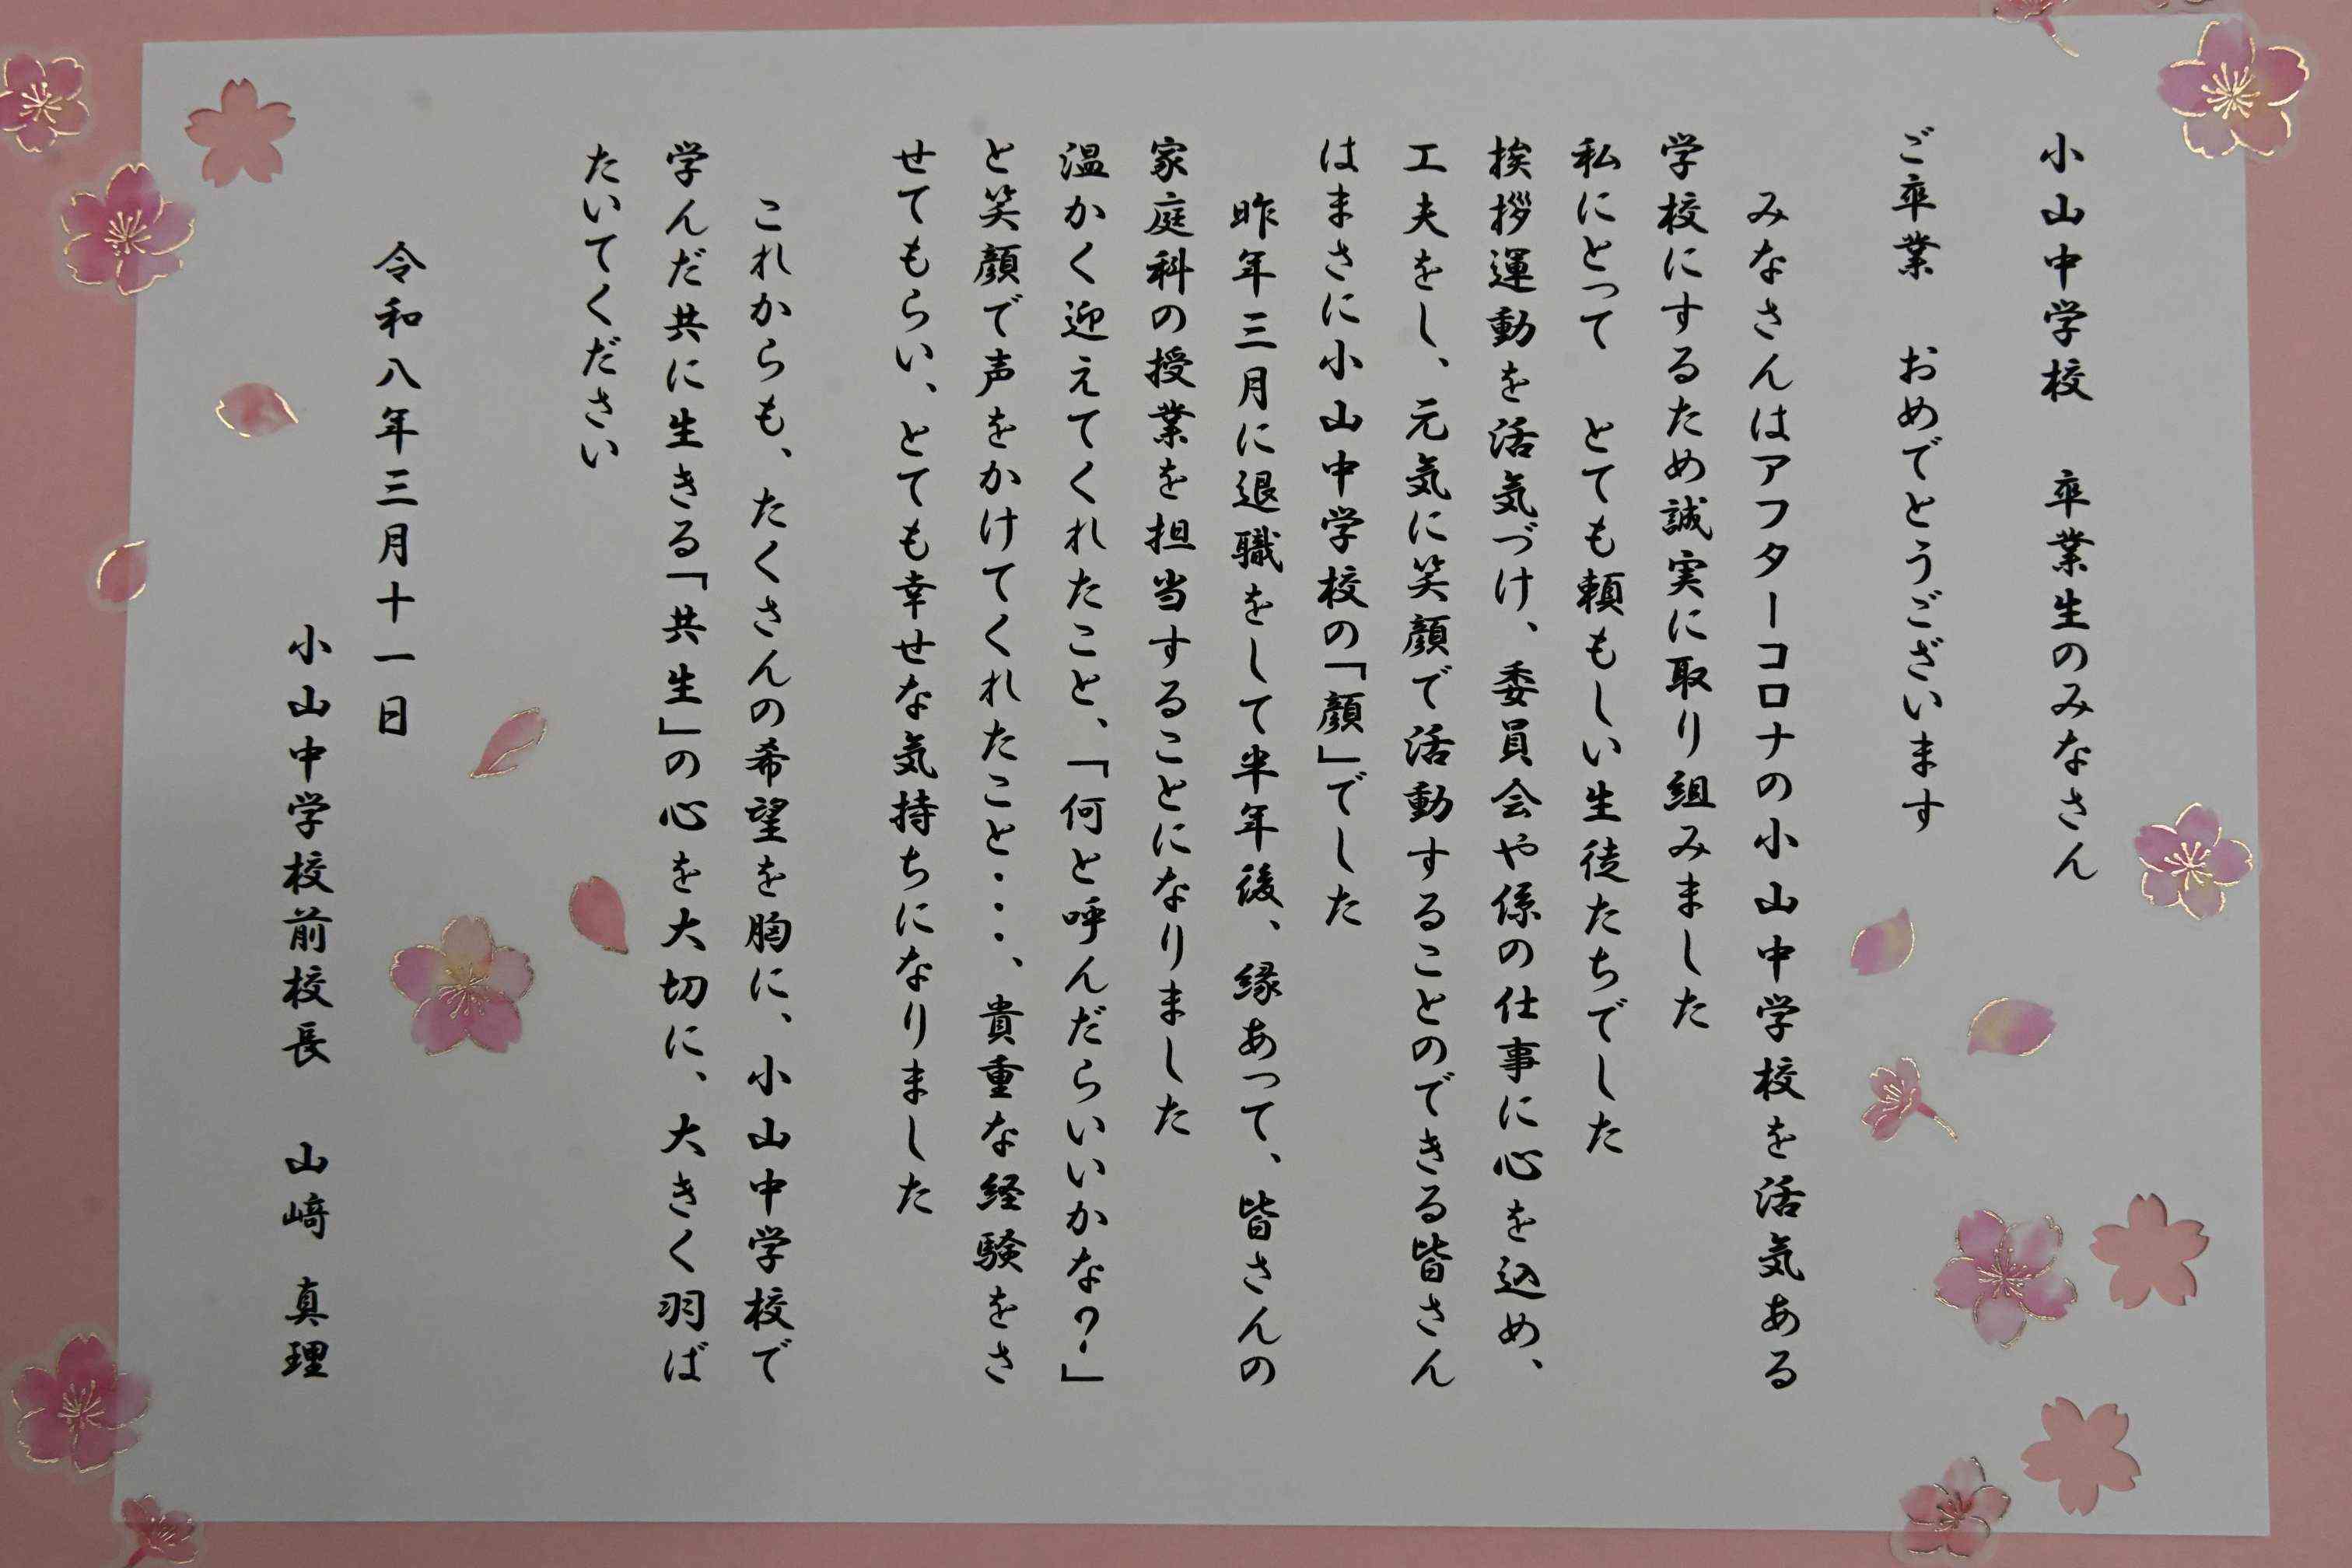 小山中学校　卒業生のみなさん
ご卒業　おめでとうございます
みなさんはアフターコロナの小山中学校を活気ある
学校にするため誠実に取り組みました
私にとって　とても頼もしい生徒たちでした
挨拶運動を活気づけ、委員会や係の仕事に心を込め、
工夫をし、元気に笑顔で活動することのできる皆さん
はまさに小山中学校の「顔」でした
昨年三月に退職をして半年後、縁あって、皆さんの
家庭科の授業を担当することになりました
温かく迎えてくれたこと、「何と呼んだらいいかな？」
と笑顔で声をかけてくれたこと・・・、貴重な経験をさ
せてもらい、とても幸せな気持ちになりました
これからも、たくさんの希望を胸に、小山中学校で
学んだ共に生きる「共生」の心を大切に、大きく羽ば
たいてください
令和八年三月十一日
小山中学校前校長　山﨑　真理